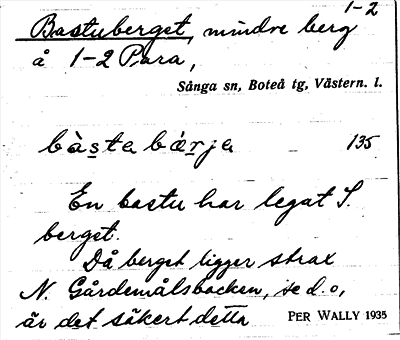 1-2
Bastuberget, mindre berg
å 1-2 Para,
Sånga sn, Boteå tg, Västern. l.
bàsta bǽrja 135
En bastu har legat S.
berget.
Då berget ligger strax
N. Gårdemålsbacken, se d. o,
är det säkert detta
PER WALLY 1935